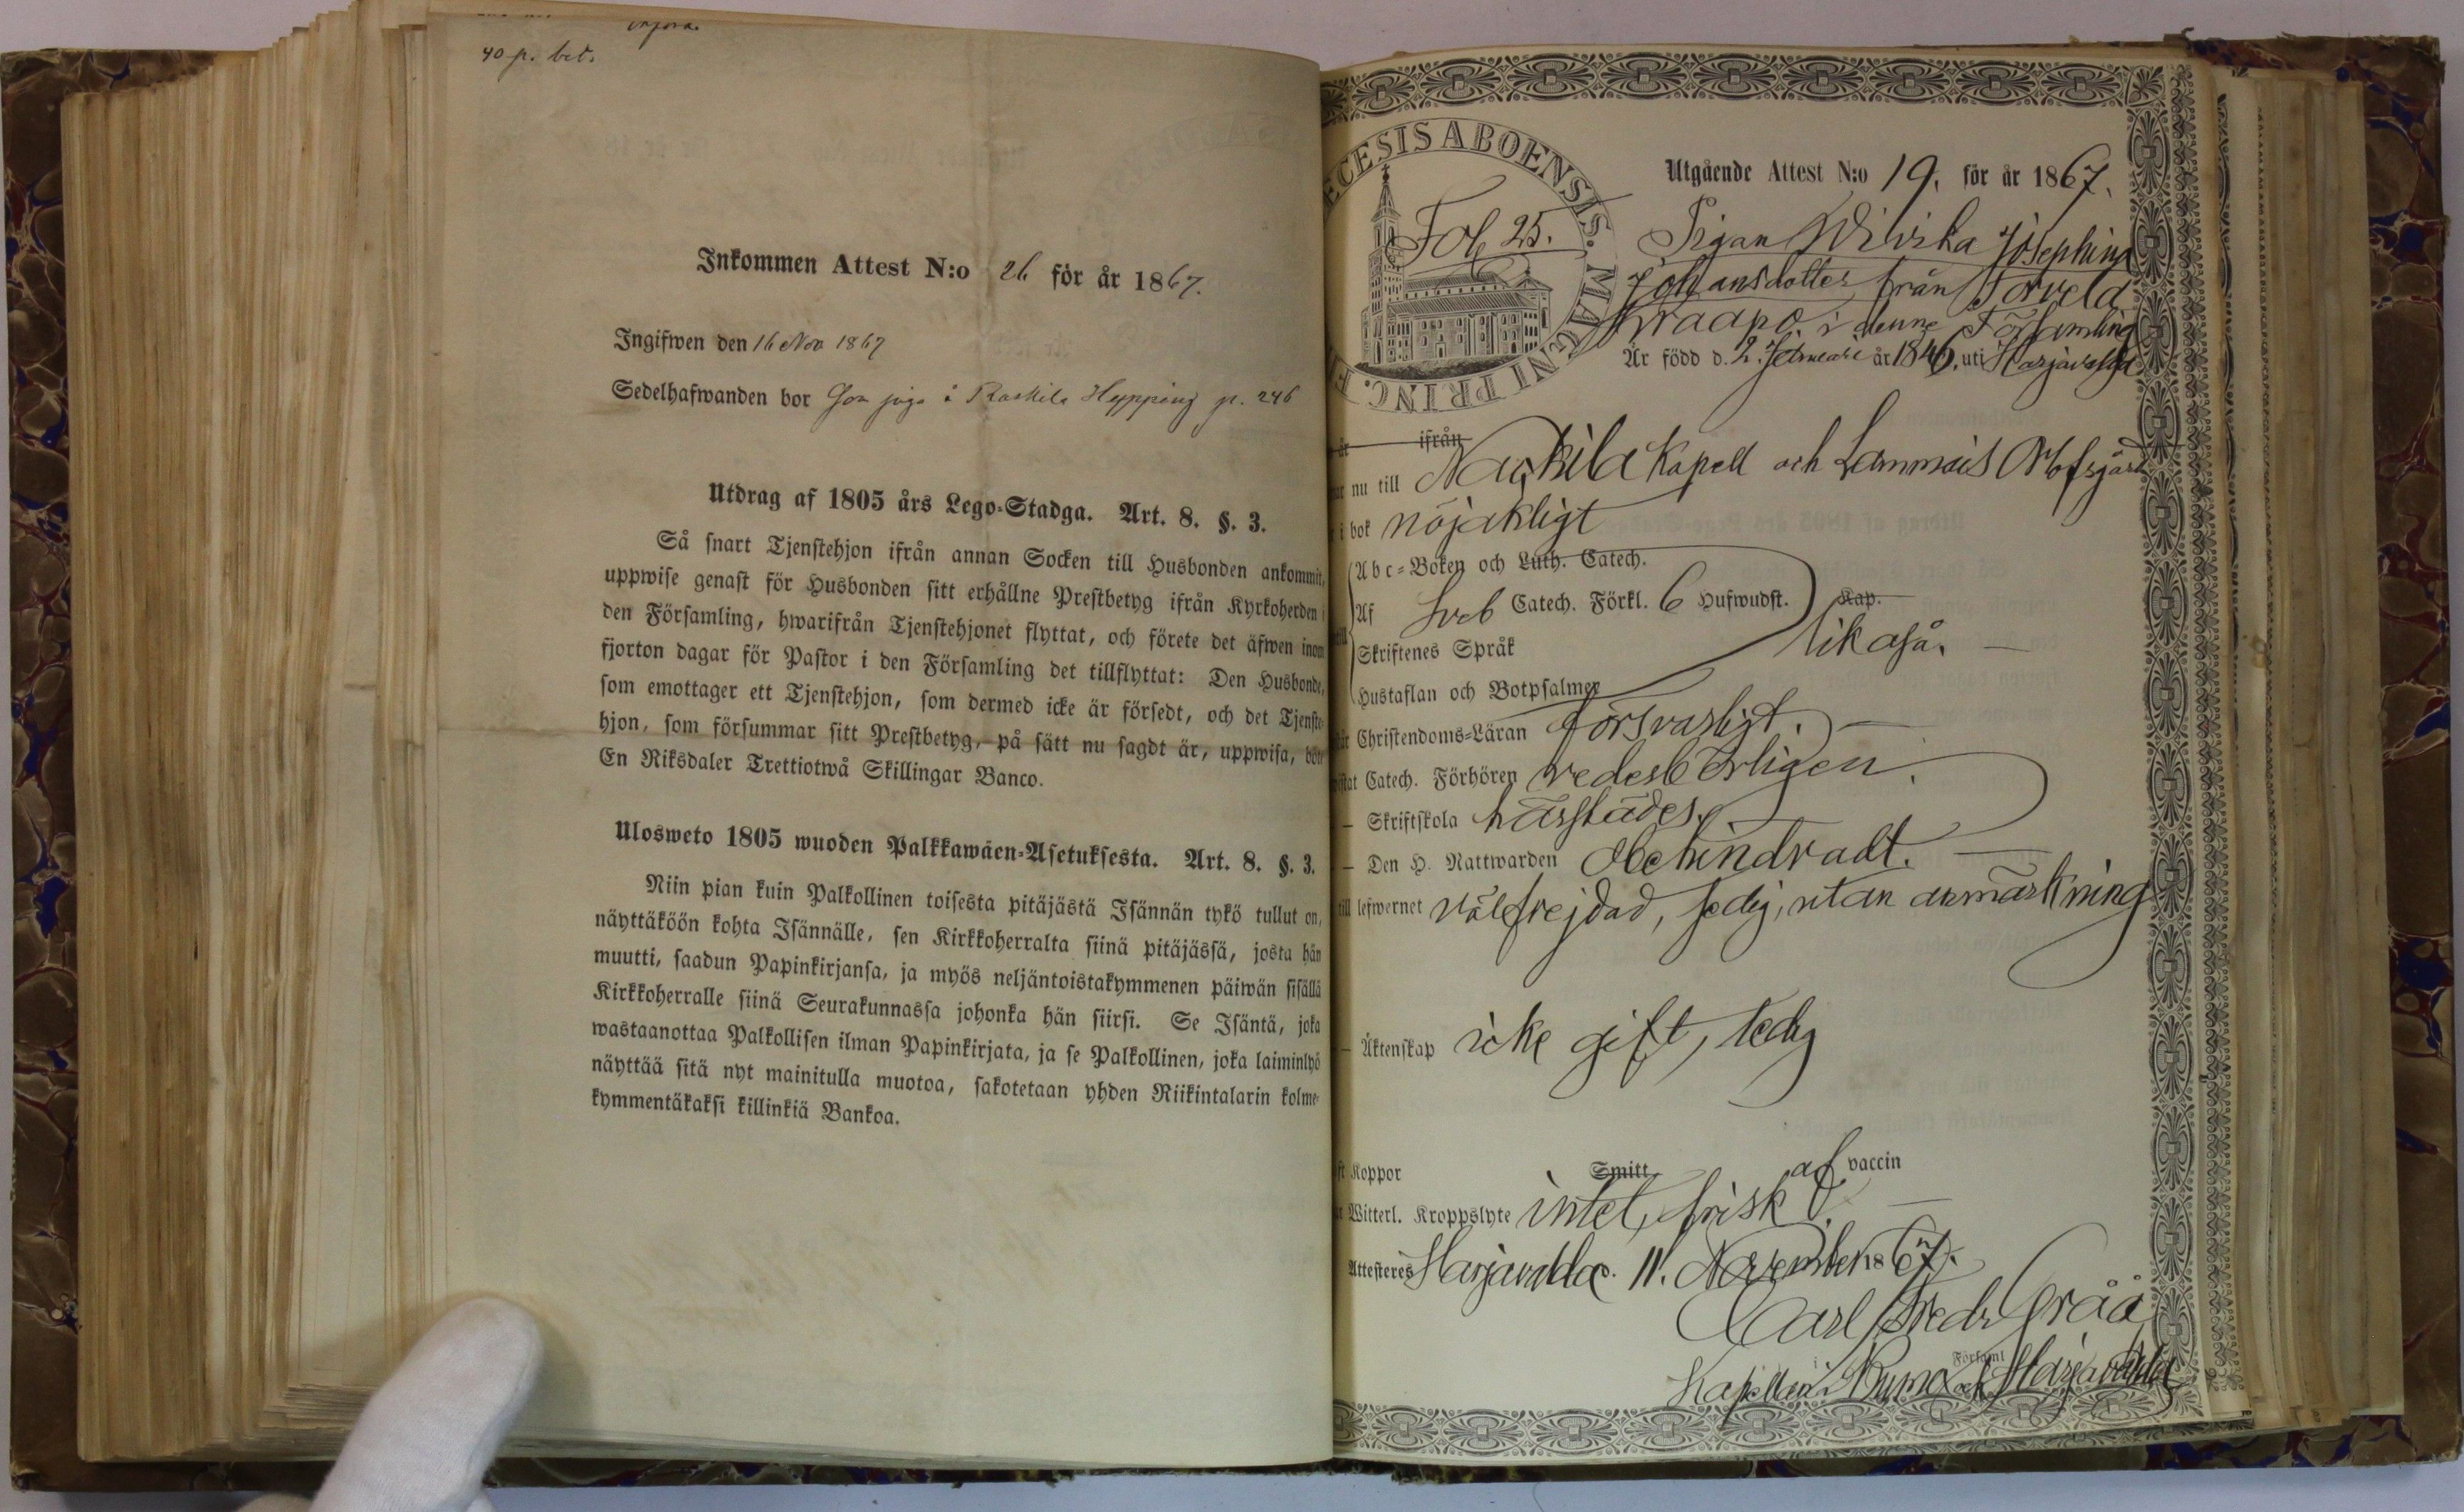 införa.
40 p. bet.
Inkommen Attest N:o 26 för år 1867.
Ingifwen den 16 Nov 1867
Sedelhafwanden bor Som piga å Raskila Hypping p. 246
Utdrag af 1805 års Lego-Stadga. Art. 8. §. 3.
Så snart Tjenstehjon ifrån annan Socken till Husbonden ankommit,
uppwise genast för Husbonden sitt erhållne Prestbetyg ifrån Kyrkoherden i
den Församling, hwarifrån Tjenstehjonet flyttat, och förete det äfwen inom
fjorton dagar för Pastor i den Församling det tillflyttat: Den Husbonde,
som emottager ett Tjenstehjon, som dermed icke är försedt, och det Tjenste-
hjon, som försummar sitt Prestbetyg, på sätt nu sagdt är, uppwisa, böte
En Riksdaler Trettiotwå Skillingar Banco.
Ulosweto 1805 wuoden Palkkawäen-Asetuksesta. Art. 8. §. 3.
Niin pian kuin Palkollinen toisesta pitäjästä Isännän tykö tullut on,
näyttäköön kohta Isännälle, sen Kirkkoherralta siinä pitäjässä, josta hän
muutti, saadun Papinkirjansa, ja myös neljäntoistakymmenen päiwän sisällä
Kirkkoherralle siinä Seurakunnassa johonka hän siirsi. Se Isäntä, joka
wastaanottaa Palkollisen ilman Papinkirjata, ja se Palkollinen, joka laiminlyö
näyttää sitä nyt mainitulla muotoa, sakotetaan yhden Riikintalarin kolme-
kymmentäkaksi killinkiä Bankoa.
ECESIS ABOENSIS. MAGNI PRINC. F
Fol. 25.
Utgående Attest N:o 19. för år 1867.
Pigan Wivika Josephina
Johansdotter från Torvela
Kraapo i denne Församling
Är född d. 2. Februari år 1846. uti Harjavalda
år ifrån
nu till Nackila Kapell och Lammais Hofsgård
i bok nöjakligt
Abc-Boken och Luth. Catech.
Af Sveb Catech. Förkl. 6 Hufwudst. Kap.
Skriftenes Språk likaså.
Hustaflan och Botpsalmer
Christendoms-Läran försvarligt.
Catech. Förhören vederbörligen.
Skriftskola härstädes.
Den H. Nattwarden Obehindradt.
till lefwernet välfrejdad, sedig, utan anmärkning
Äktenskap icke gift, ledig
Koppor Smitt af vaccin
Witterl. Kroppslyte intet, frisk
Attesteres Harjavalda d. 11. November 1867.
Carl Fredr Gråå
Församl
Kapellan i Kumo och Harjavalda